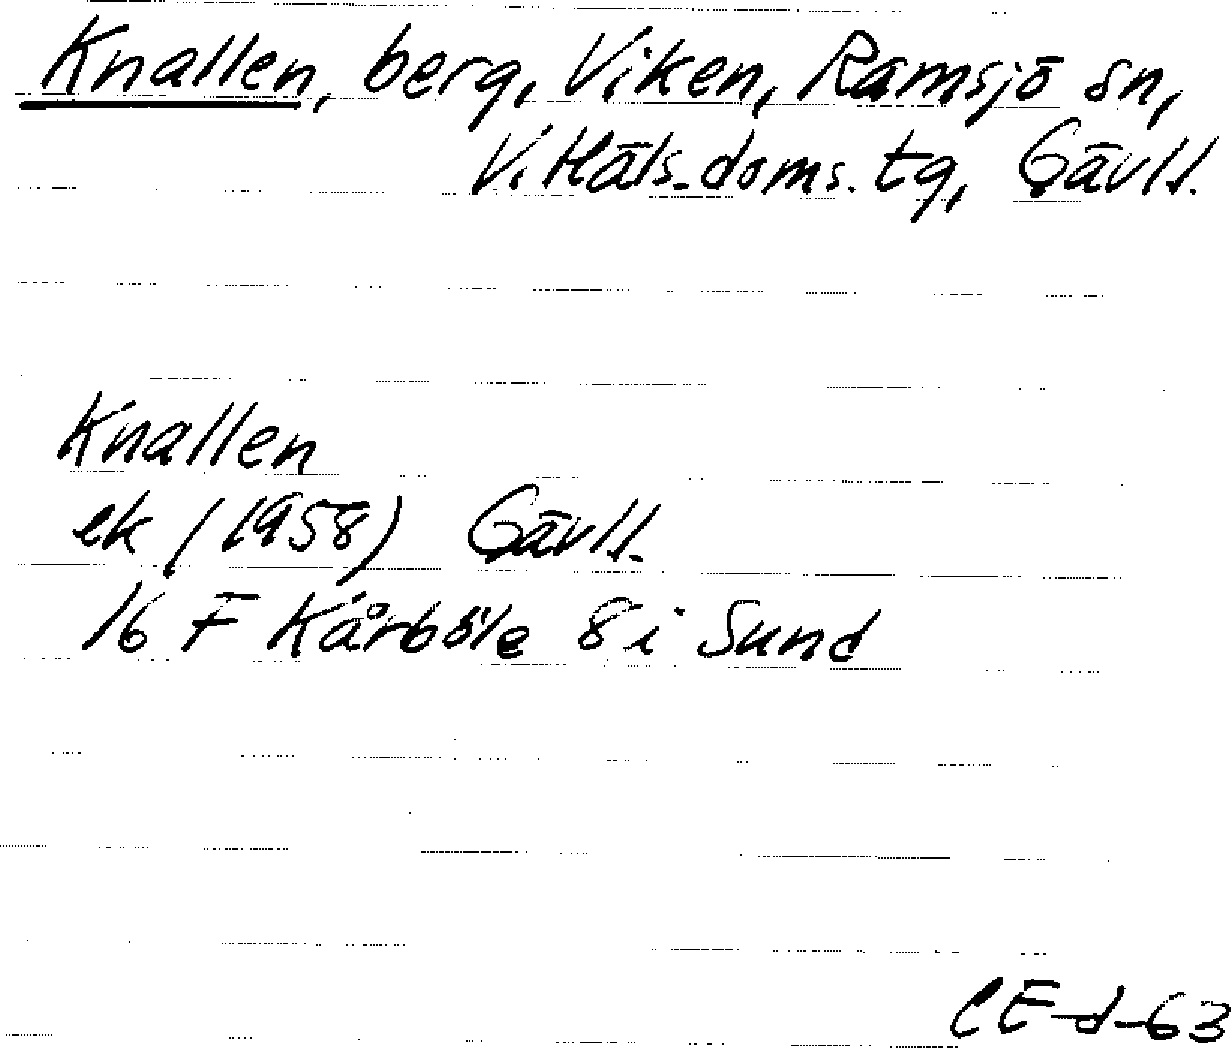 Knallen, berg, Viken, Ramsjö sn,
V. Häls. doms. tg, Gävll.
Knallen
ek (1958) Gävll.
16 F Kårböle 8 i Sund
CE-d-63